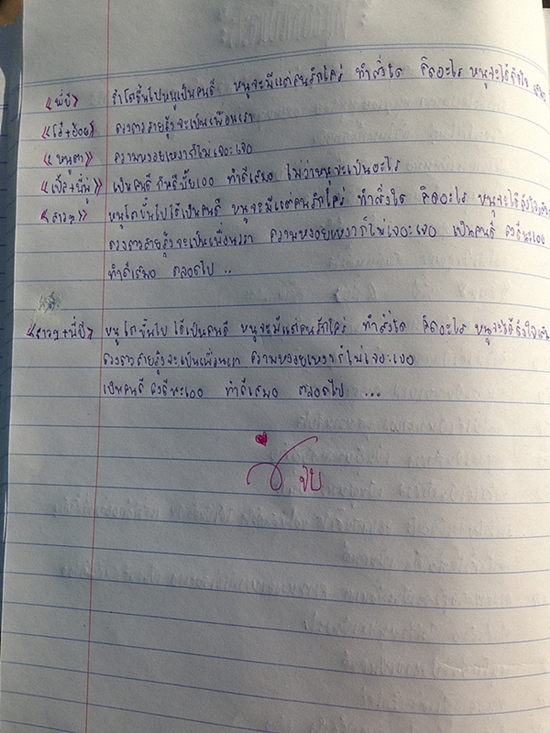 ถ้าโตขึ้นไปหนูเป็นคนดี หนูจะมีแต่คนรักใคร่ ทำสิ่งใด คิดอะไร หนูจะได้ดั่งใจ
ดวงดาวสายรุ้งจะเป็นเพื่อนเรา
ความหงอยเหงาก็ไม่เจอะเจอ
เป็นคนดี ทำดีเสมอ ไม่ว่าหนูจะเป็นอะไร
<สาวๆ> หนูโตขึ้นไปได้เป็นคนดี หนูจะมีแต่คนรักใคร่ ทำสิ่งใด คิดอะไร หนูจะได้ดั่งใจ
ดวงดาวสายรุ้งจะเป็นเพื่อนเรา ความหงอยเหงาก็ไม่เจอะเจอ เป็นคนดี
ทำดีเสมอ ตลอดไป ..
หนูโตขึ้นไป ได้เป็นคนดี หนูจะมีแต่คนรักใคร่ ทำสิ่งใด คิดอะไร หนูจะได้ดั่งใจ
ดวงดาวสายรุ้งจะเป็นเพื่อนเรา ความหงอยเหงาก็ไม่เจอะเจอ
เป็นคนดี ทำดีเสมอ ตลอดไป ...
จบ